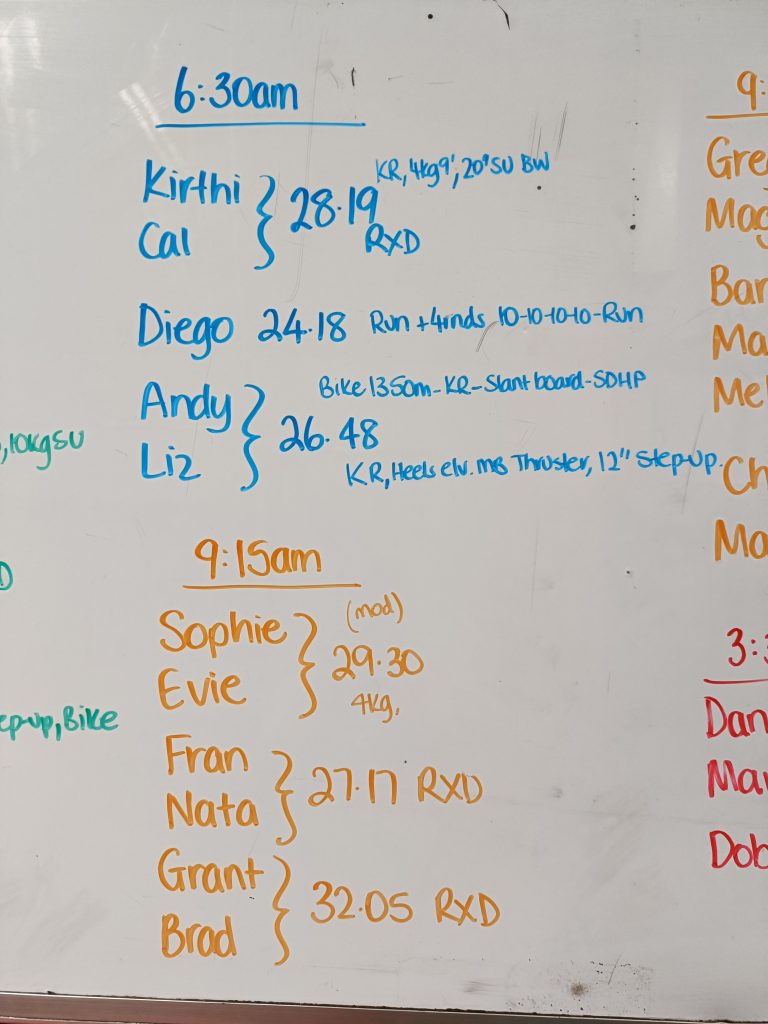 6:30am
KR, 4kg 9', 20" SU BW
Kirthi
Cal
28.19
RXD
Diego 24.18 Run + 4rnds 10-10-10-10-Run
Bike 1350m-KR-Slant board-SDHP
Andy
Liz
26.48
KR, Heels elv. MB Thruster, 12" Step-up.
9:15am
Sophie
Evie
(mod)
29.30
4kg.
Fran
Nata
27.17 RXD
Grant
Brad
32.05 RXD
, 10kg SU
D
ep-up, Bike
9:
Gre
Mag
Bar
Ma
Mel
Ch
Ma
3:3
Dan
Mar
Dob